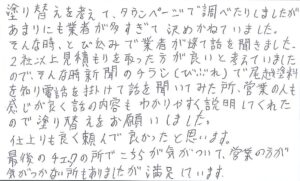 塗り替えを考えて、タウンページで調べたりしましたが
あまりにも業者が多すぎて決めかねていました。
そんな時、とび込みで業者が来て話を聞きました。
2社以上見積もりを取った方が良いと考えていました
ので、そんな時新聞のチラシ(びぶれ)で尾越塗料
を知り電話を掛けて話を聞いてみた所、営業の人も
感じが良く話の内容もわかりやすく説明してくれた
ので塗り替えをお願いしました。
仕上りも良く頼んで良かったと思います。
最後のチェックの所でこちらが気がついて、営業の方が
気がつかない所もありましたが満足しています。